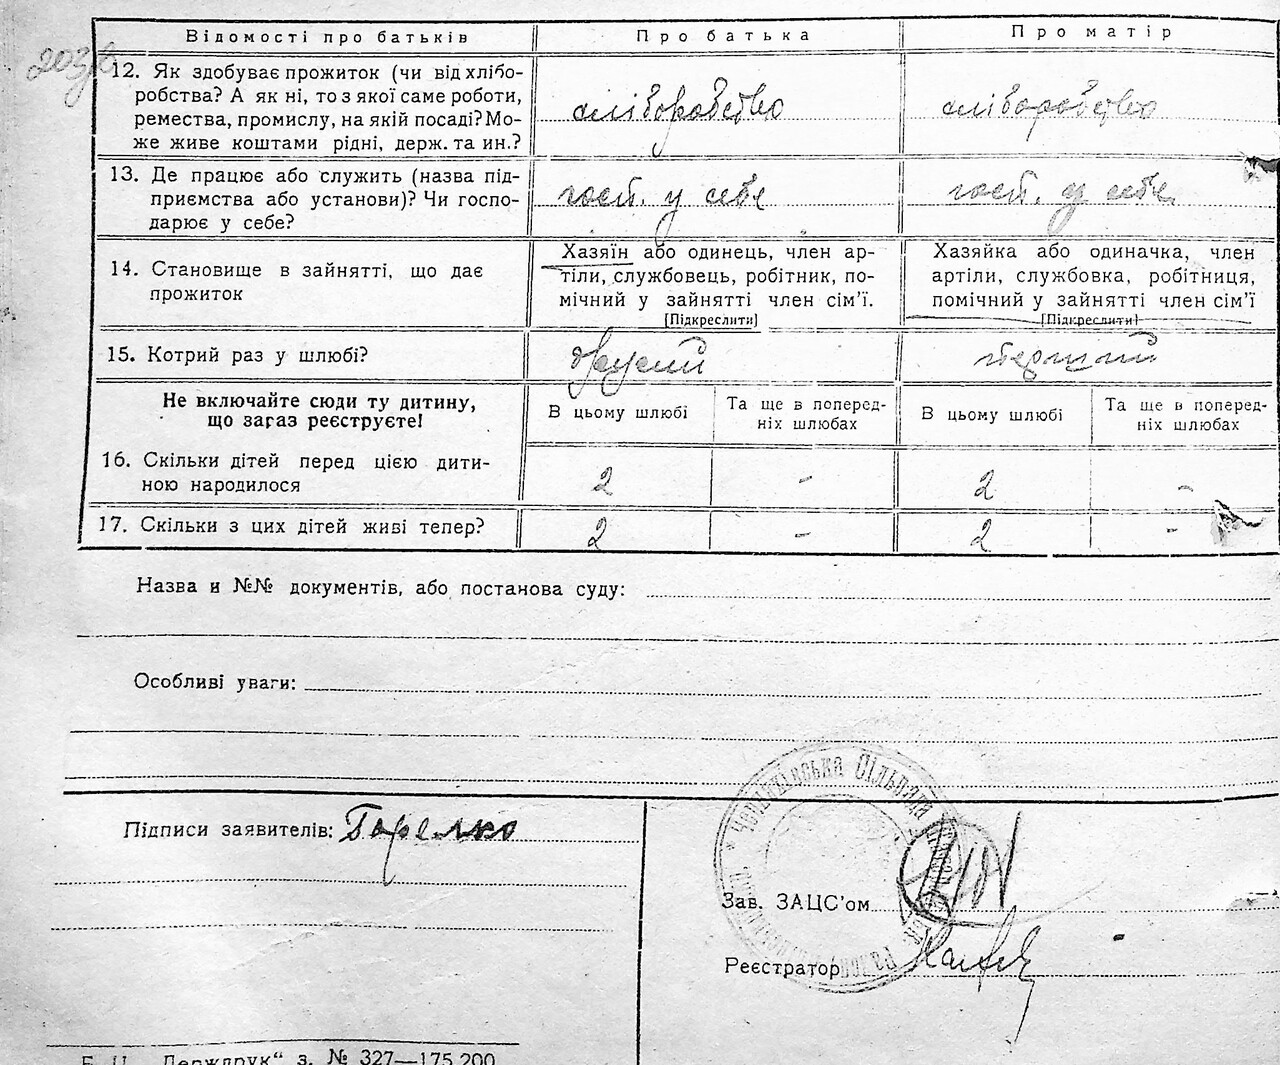 203/в
Відомості про батьків
Про батька
Про матір
12. Як здобуває прожиток (чи від хлібо-
робства? А як ні, то з якої саме роботи,
ремества, промислу, на якій посаді? Мо-
же живе коштами рідні, держ. та ин.?
хліборобство
хліборобство
13. Де працює або служить (назва під-
приємства або установи)? Чи госпо-
дарює у себе?
госп. у себе
госп. у себе
14. Становище в зайнятті, що дає
прожиток
Хазяїн або одинець, член ар-
тіли, службовець, робітник, по-
мічний у зайнятті член сім’ї.
[Підкреслити]
Хазяйка або одиначка, член
артіли, службовка, робітниця,
помічний у зайнятті член сім’ї
[Підкреслити]
15. Котрий раз у шлюбі?
другий
перший
Не включайте сюди ту дитину,
що загаз реєструєте!
В цьому шлюбі
Та ще в поперед-
ніх шлюбах
В цьому шлюбі
Та ще в поперед-
ніх шлюбах
16. Скільки дітей перед цією дити-
ною народилося
2 - 2 -
17. Скільки з цих дітей живі тепер?
2 - 2 -
Назва и №№ документів, або постанова суду:
Особливі уваги:
Підписи заявителів: Горелко
Сільська
Зав. ЗАЦС’ом
Реєстратор
Б. Ц. „Держдрук“ з. № 327—175.200